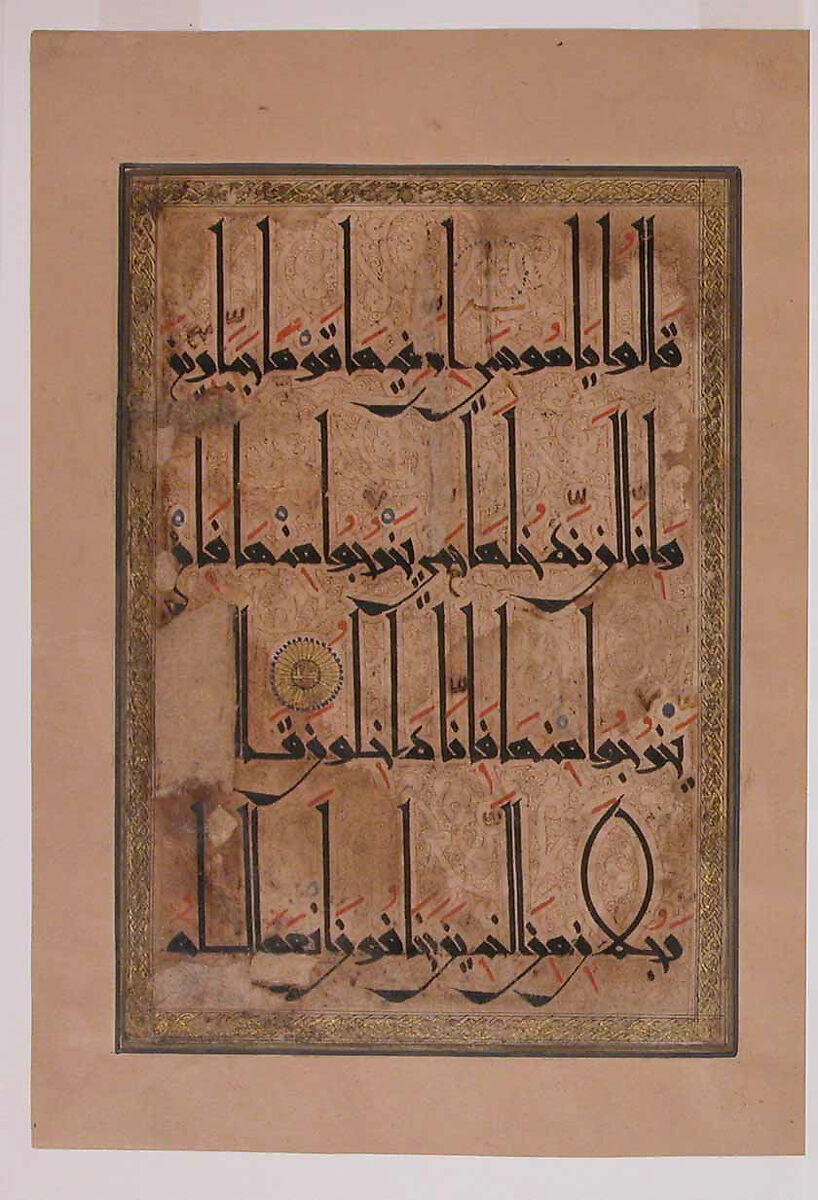 قالوا ياموسى ان فيها قوما جبارين
وانا لن ندخلها حتى يخرجوا منها فان
يخرجوا منها فانا داخلون قال
رجلان من الذين يخافون انعم الله